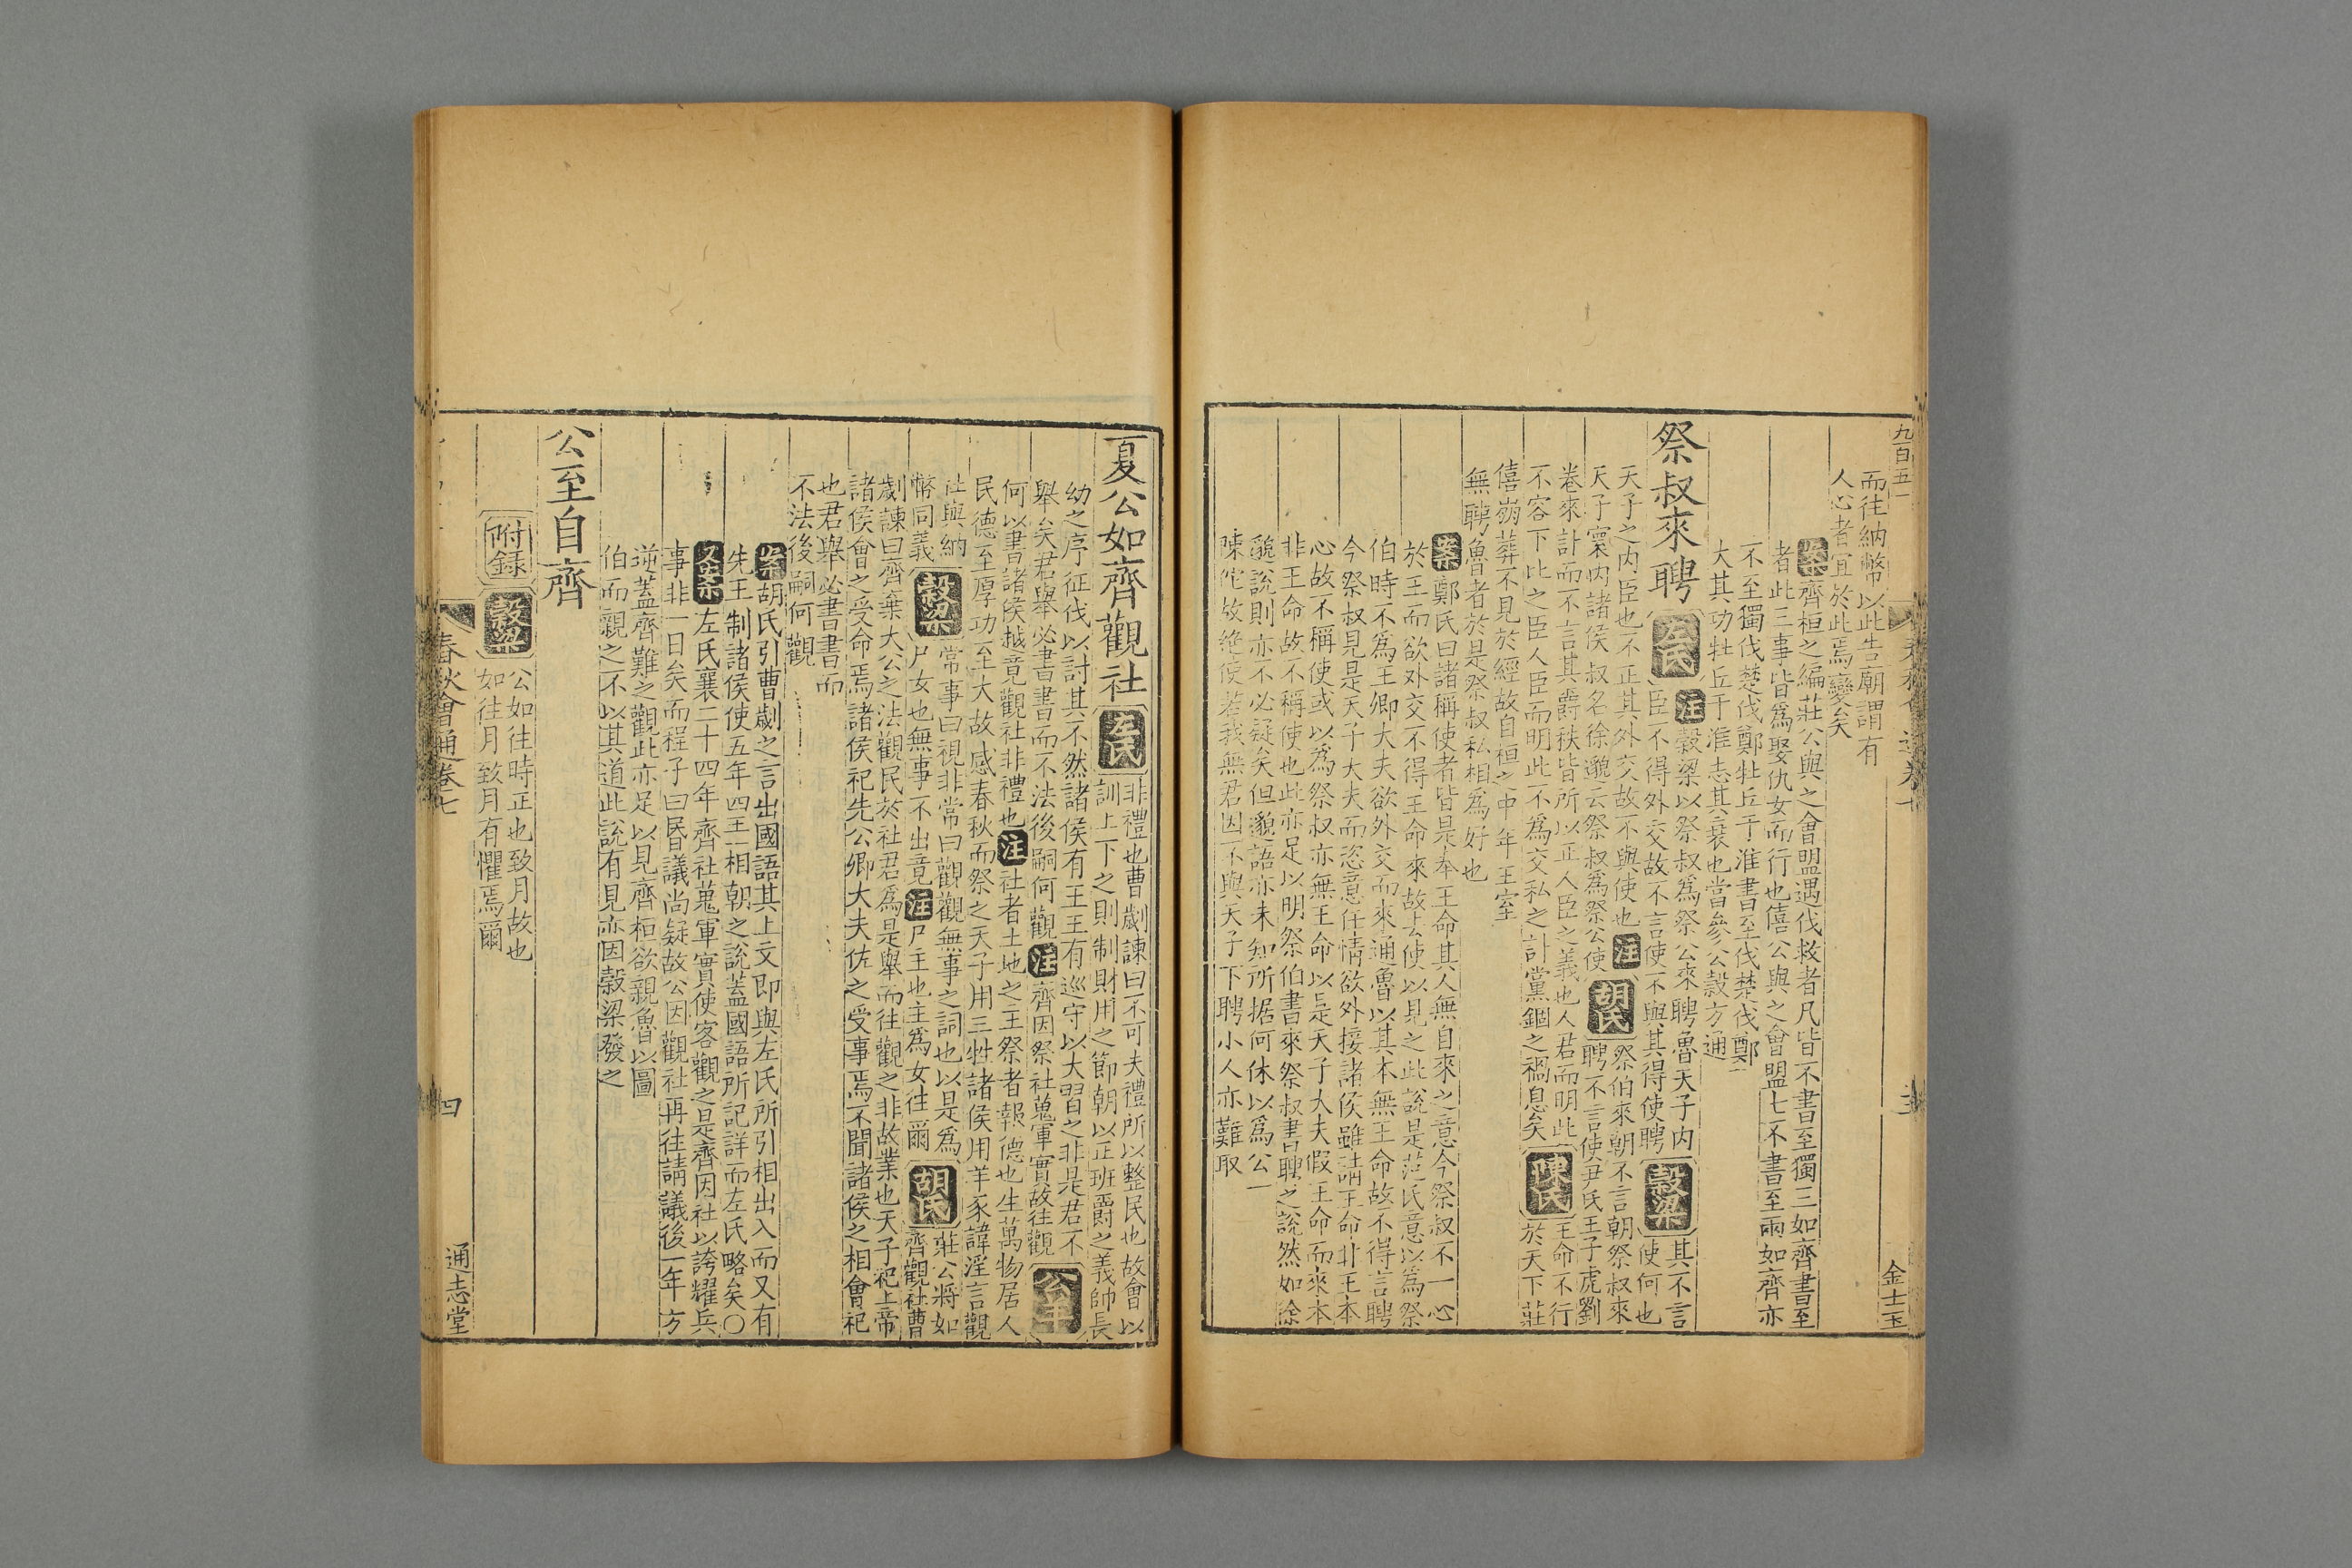 九百五一
而往納幣以此告廟謂有
人心者宜於此焉變矣
案齊桓之編莊公與之會盟遇伐救者凡皆不書至獨三如齊書至
者此三事皆爲娶仇女而行也僖公與之會盟七不書至兩如齊亦
不至獨伐楚伐鄭牡丘于淮書至伐楚伐鄭
大其功牡丘于淮志其衰也當參公穀方通
祭叔來聘
左氏
注穀梁以祭叔爲祭公來聘魯天子内
臣不得外交故不言使不與其得使聘
穀梁
其不言
使何也
天子之内臣也不正其外交故不與使也注
天子寰内諸侯叔名徐邈云祭叔爲祭公使
胡氏
祭伯來朝不言朝祭叔來
聘不言使尹氏王子虎劉
卷來訃而不言其爵秩皆所以正人臣之義也人君而明此
不容下比之臣人臣而明此不爲交私之計黨錮之禍息矣
陳氏
王命不行
於天下莊
僖崩葬不見於經故自桓之中年王室
無聘魯者於是祭叔私相爲好也
案鄭氏曰諸稱使者皆是奉王命其人無自來之意今祭叔不一心
於王而欲外交不得王命來故去使以見之此說是范氏意以爲祭
伯時不爲王卿大夫欲外交而來通魯以其本無王命故不得言聘
今祭叔見是天子大夫而恣意任情欲外接諸侯雖請王命非王本
心故不稱使或以爲祭叔亦無王命以是天子大夫假王命而來本
非王命故不稱使也此亦足以明祭伯書來祭叔書聘之說然如徐
邈說則亦不必疑矣但邈語亦未知所据何休以爲公一
陳佗故絶使若我無君因不與天子下聘小人亦難取
金士玉
夏公如齊觀社
左氏
非禮也曹劌諫曰不可夫禮所以整民也故會以
訓上下之則制財用之節朝以正班爵之義帥長
幼之序征伐以討其不然諸侯有王王有巡守以大習之非是君不
舉矣君舉必書書而不法後嗣何觀注齊因祭社蒐軍實故往觀
公羊
何以書諸侯越竟觀社非禮也注社者土地之主祭者報德也生萬物居人
民德至厚功至大故感春秋而祭之天子用三牲諸侯用羊豕諱淫言觀
社與納
幣同義
穀梁
常事曰視非常曰觀觀無事之詞也以是爲
尸女也無事不出竟注尸主也主爲女往爾
胡氏
莊公將如
齊觀社曹
劌諫曰齊棄太公之法觀民於社君爲是舉而往觀之非故業也天子祀上帝
諸侯會之受命焉諸侯祀先公卿大夫佐之受事焉不聞諸侯之相會祀
也君舉必書書而
不法後嗣何觀
案胡氏引曹劌之言出國語其上文即與左氏所引相出入而又有
先王制諸侯使五年四王一相朝之說蓋國語所記詳而左氏略矣〇
又案左氏襄二十四年齊社蒐軍實使客觀之是齊因社以誇耀兵
事非一日矣而程子曰昬議尚疑故公因觀社再往請議後一年方
逆蓋齊難之觀此亦足以見齊桓欲親魯以圖
伯而觀之不以其道此說有見亦因穀梁發之
公至自齊
附録
穀梁
公如往時正也致月故也
如往月致月有懼焉爾
春秋會通卷七
四
通志堂